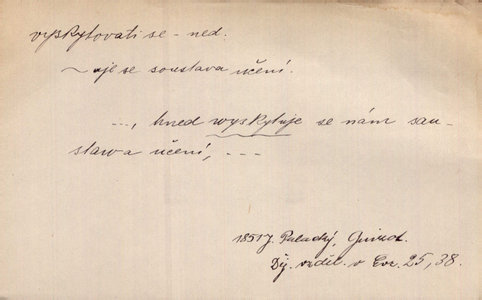 vyskytovati se - ned.
~ uje se soustava učení.
..., hned wyskytuje se nám sau-
stawa učení, ---
1851 J. Palacký, Guizot.
Děj. vzděl. v Evr. 25, 38.